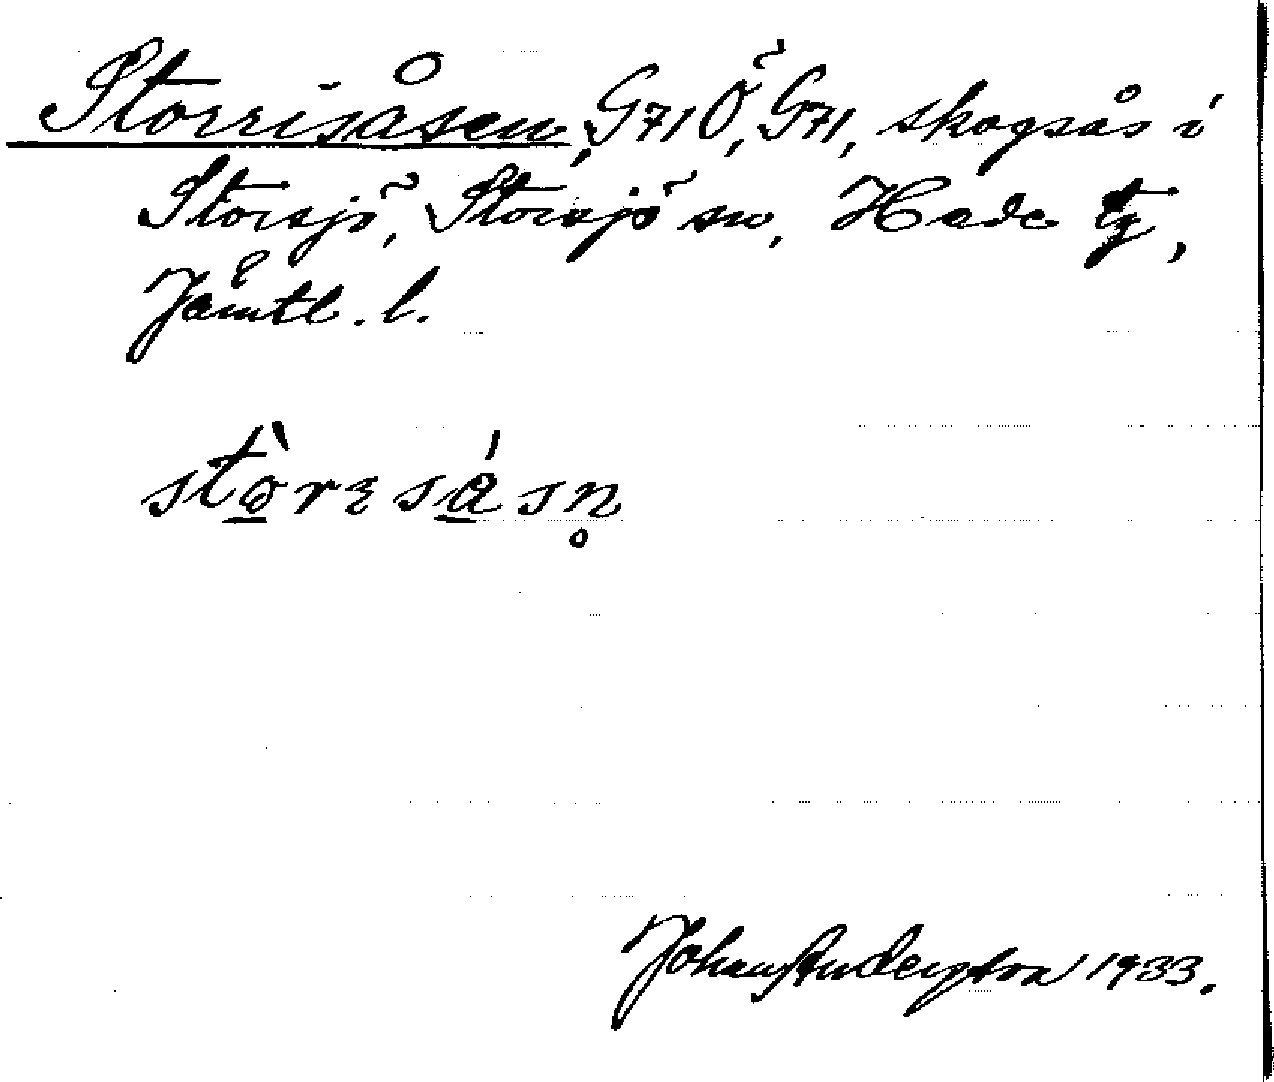 Storrisåsen, G71Ö, G71, skogsås i
Storsjö, Storsjö sn, Hede tg,
Jämtl. l.
stòresásn̥
Johan Anderson 1933.